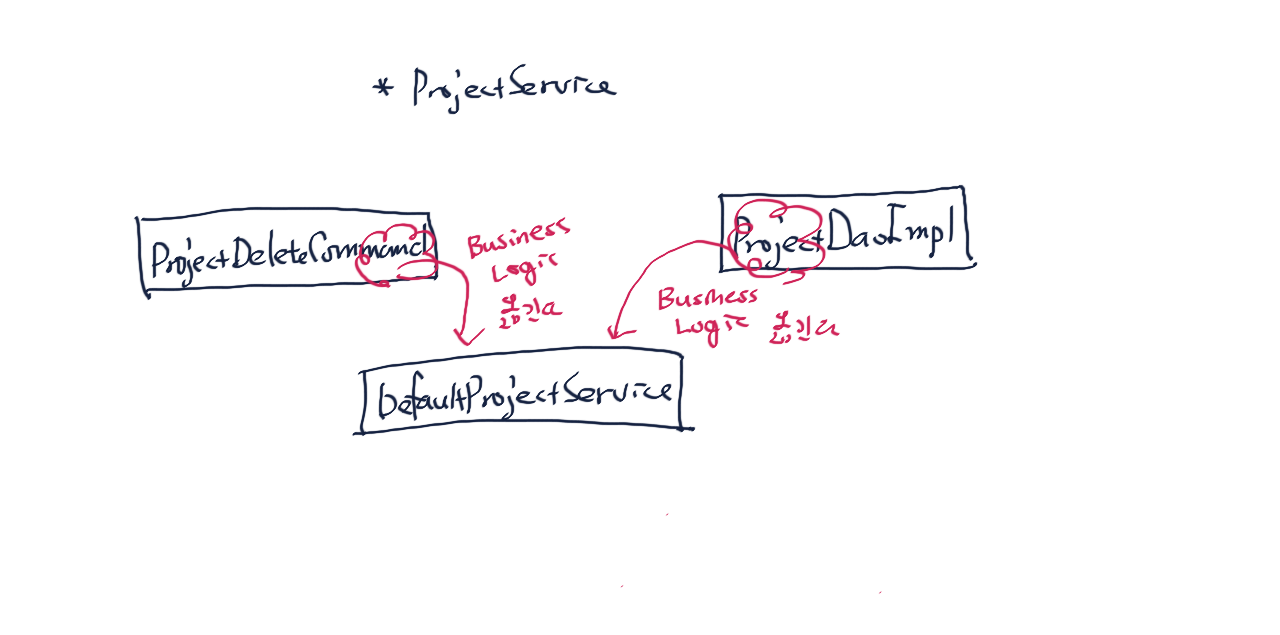 * ProjectService
ProjectDeleteCommand
Business
Logic
옮긴다
ProjectDaoImpl
Business
Logic 옮긴다
DefaultProjectService